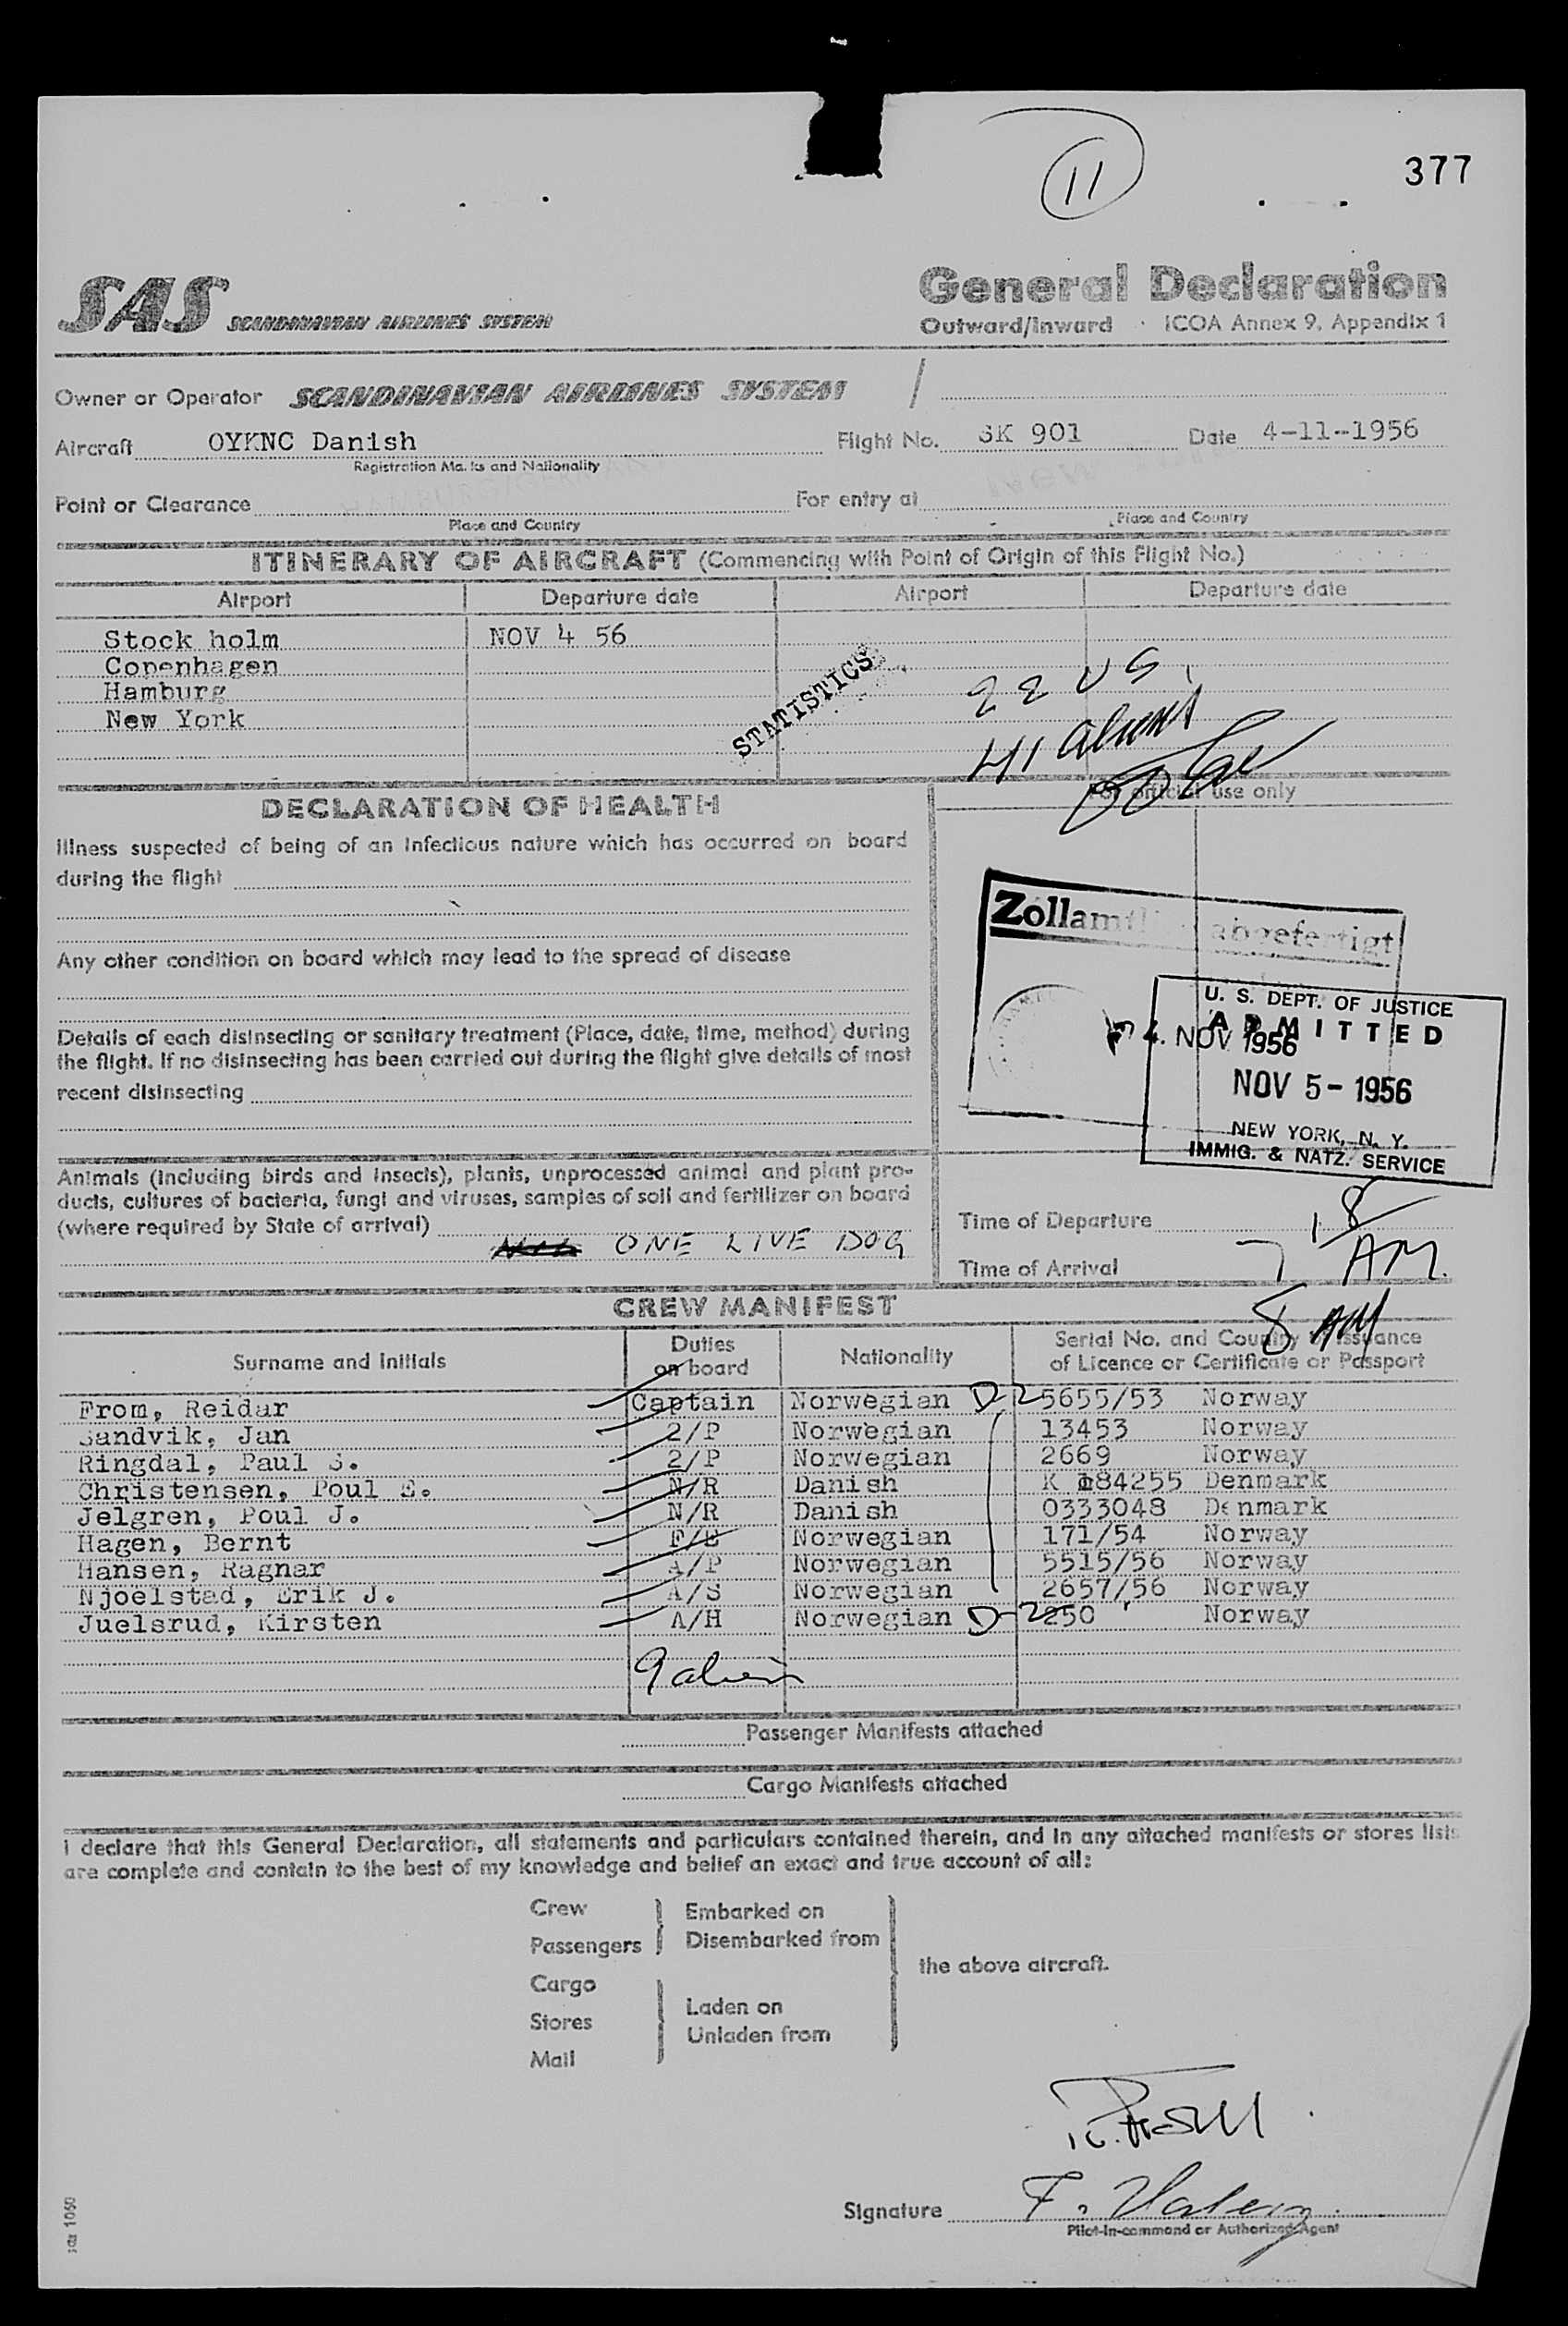 11
377
SAS SCANDINAVIAN AIRLINES SYSTEM
General Declaration
Outward/Inward · ICOA Annex 9, Appendix 1
Owner or Operator SCANDINAVIAN AIRLINES SYSTEM /
Aircraft OYKNC Danish Flight No. SK 901 Date 4-11-1956
Registration Marks and Nationality
Point or Clearance For entry at
Place and Country Place and Country
ITINERARY OF AIRCRAFT (Commencing with Point of Origin of this Flight No.)
Airport Departure date Airport Departure date
Stock holm NOV 4 56
Copenhagen
Hamburg
New York
STATISTICS
22 US
41 aliens
For official use only
DECLARATION OF HEALTH
Illness suspected of being of an infectious nature which has occurred on board
during the flight
Any other condition on board which may lead to the spread of disease
Details of each disinsecting or sanitary treatment (Place, date, time, method) during
the flight. If no disinsecting has been carried out during the flight give details of most
recent disinsecting
Zollamtlich abgefertigt
4. NOV 1956
U. S. DEPT. OF JUSTICE
ADMITTED
NOV 5 - 1956
NEW YORK, N. Y.
IMMIG. & NATZ. SERVICE
Animals (including birds and insects), plants, unprocessed animal and plant pro-
ducts, cultures of bacteria, fungi and viruses, samples of soil and fertilizer on board
(where required by State of arrival)
ONE LIVE DOG
Time of Departure 18
Time of Arrival 7 AM.
8 AM
CREW MANIFEST
Surname and Initials Duties on board Nationality Serial No. and Country of Issuance of Licence or Certificate or Passport
From, Reidar Captain Norwegian D-2 5655/53 Norway
Sandvik, Jan 2/P Norwegian 13453 Norway
Ringdal, Paul S. 2/P Norwegian 2669 Norway
Christensen, Poul E. N/R Danish K 184255 Denmark
Jelgren, Poul J. N/R Danish 0333048 Denmark
Hagen, Bernt F/E Norwegian 171/54 Norway
Hansen, Ragnar A/P Norwegian 5515/56 Norway
Njoelstad, Erik J. A/S Norwegian 2657/56 Norway
Juelsrud, Kirsten A/H Norwegian D-2 250 Norway
9 alien
Passenger Manifests attached
Cargo Manifests attached
I declare that this General Declaration, all statements and particulars contained therein, and in any attached manifests or stores lists
are complete and contain to the best of my knowledge and belief an exact and true account of all:
Crew
Passengers
Embarked on
Disembarked from
Cargo
Stores
Mail
Laden on
Unladen from
the above aircraft.
R. From
Signature
Pilot-in-command or Authorized Agent